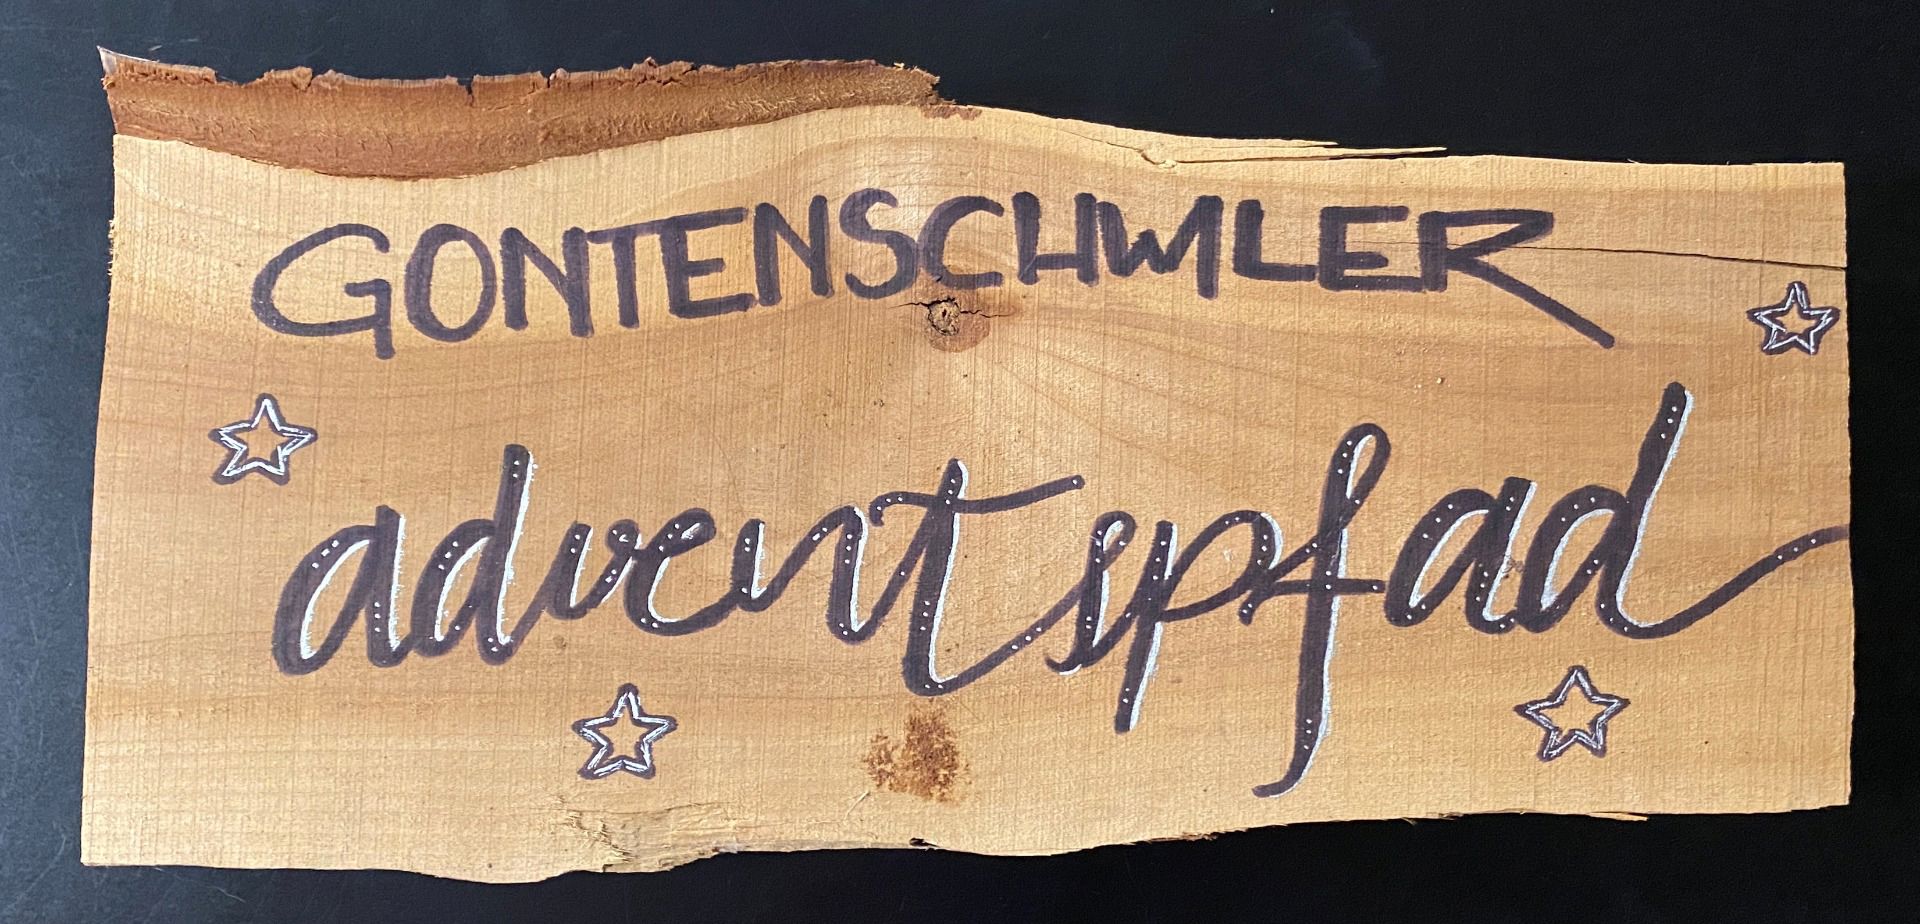 GONTENSCHWILER
adventspfad